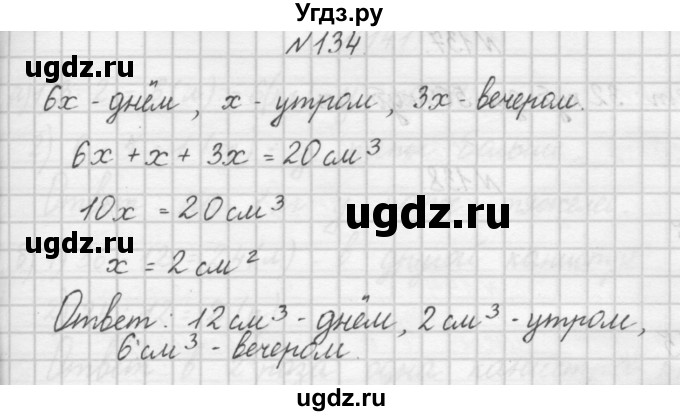 Угдз.ру
№134.
ugdz.ru
6x - днём, x - утром, 3x - вечером.
6x + x + 3x = 20 см³
10x = 20 см³
ugdz.ru
x = 2 см²
Ответ: 12 см³ - днём, 2 см³ - утром,
6 см³ - вечером.
ugdz.ru